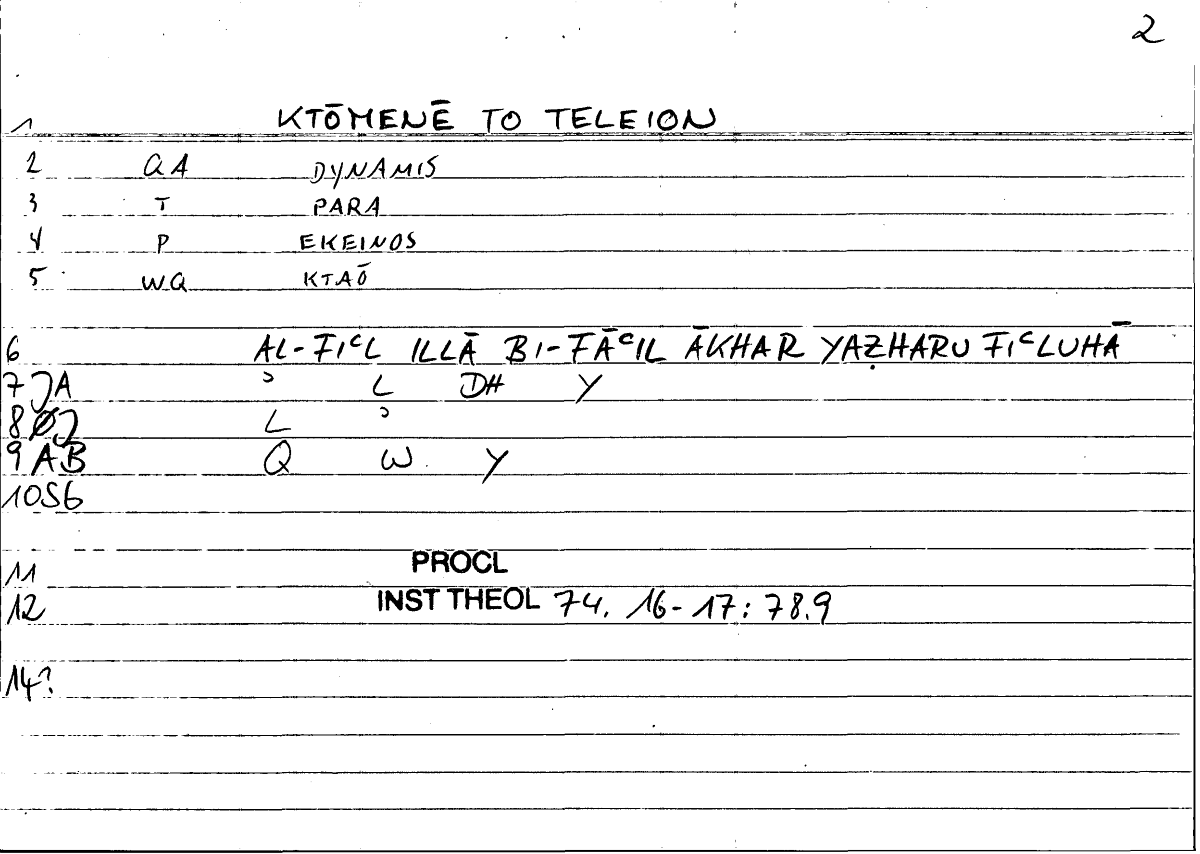 2
1 KTŌMENĒ TO TELEION
2 QA DYNAMIS
3 T PARA
4 P EKEINOS
5 WQ KTAŌ
6 AL-FIᶜL ILLĀ BI-FĀᶜIL ĀKHAR YAẒHARU FIᶜLUHĀ
7 JA ʾ L DH Y
8 ØJ L ʾ
9 AB Q W Y
10 S6
11 PROCL
12 INST THEOL 74. 16-17: 78.9
14?